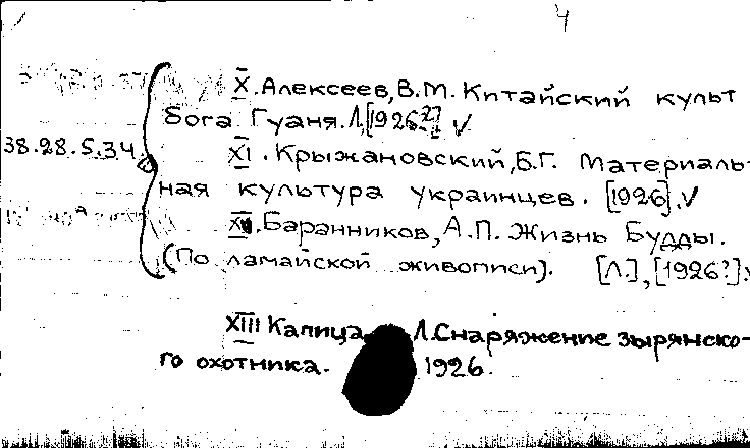 4
X. Алексеев, В.М. Китайский культ
бога Гуаня. Л, [1926?] V
38.28.5.34
XI. Крыжановский, Б.Г. Материаль-
ная культура украинцев. [1926]. V
XII. Баранников, А.П. Жизнь Будды.
(По ламайской живописи). [Л.], [1926?] V
XIII Капица Л. Снаряжение зырянско-
го охотника. 1926.